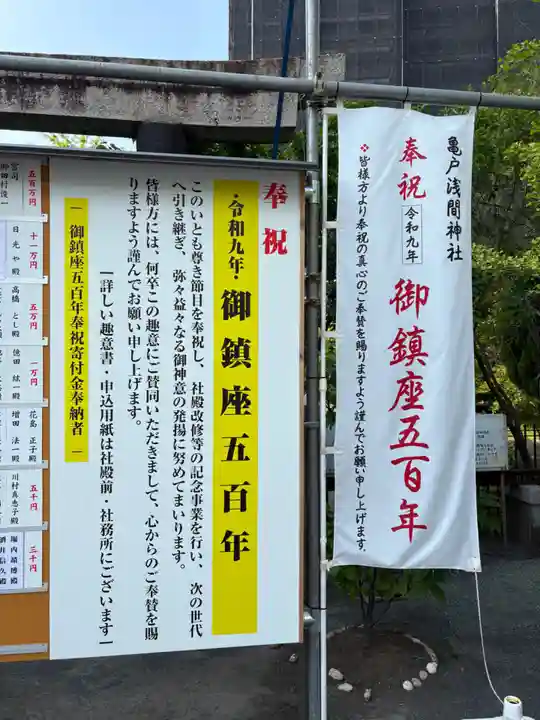 亀戸浅間神社
奉祝 令和九年 御鎮座五百年
※皆様方より奉祝の真心のご奉賛を賜りますよう謹んでお願い申し上げます。
奉祝
・令和九年・ 御鎮座五百年
このいとも尊き節目を奉祝し、社殿改修等の記念事業を行い、次の世代
へ引き継ぎ、弥々益々なる御神意の発揚に努めてまいります。
皆様方には、何卒この趣意にご賛同いただきまして、心からのご奉賛を賜
りますよう謹んでお願い申し上げます。
―詳しい趣意書・申込用紙は社殿前・社務所にございます―
― 御鎮座五百年奉祝寄付金奉納者 ―
五百万円
宮司
十一万円
日光や殿
五万円
高橋とし殿
一万円
徳田
花島正子殿
増田法一殿
五千円
川村真恵子殿
三千円
堀内靖博殿